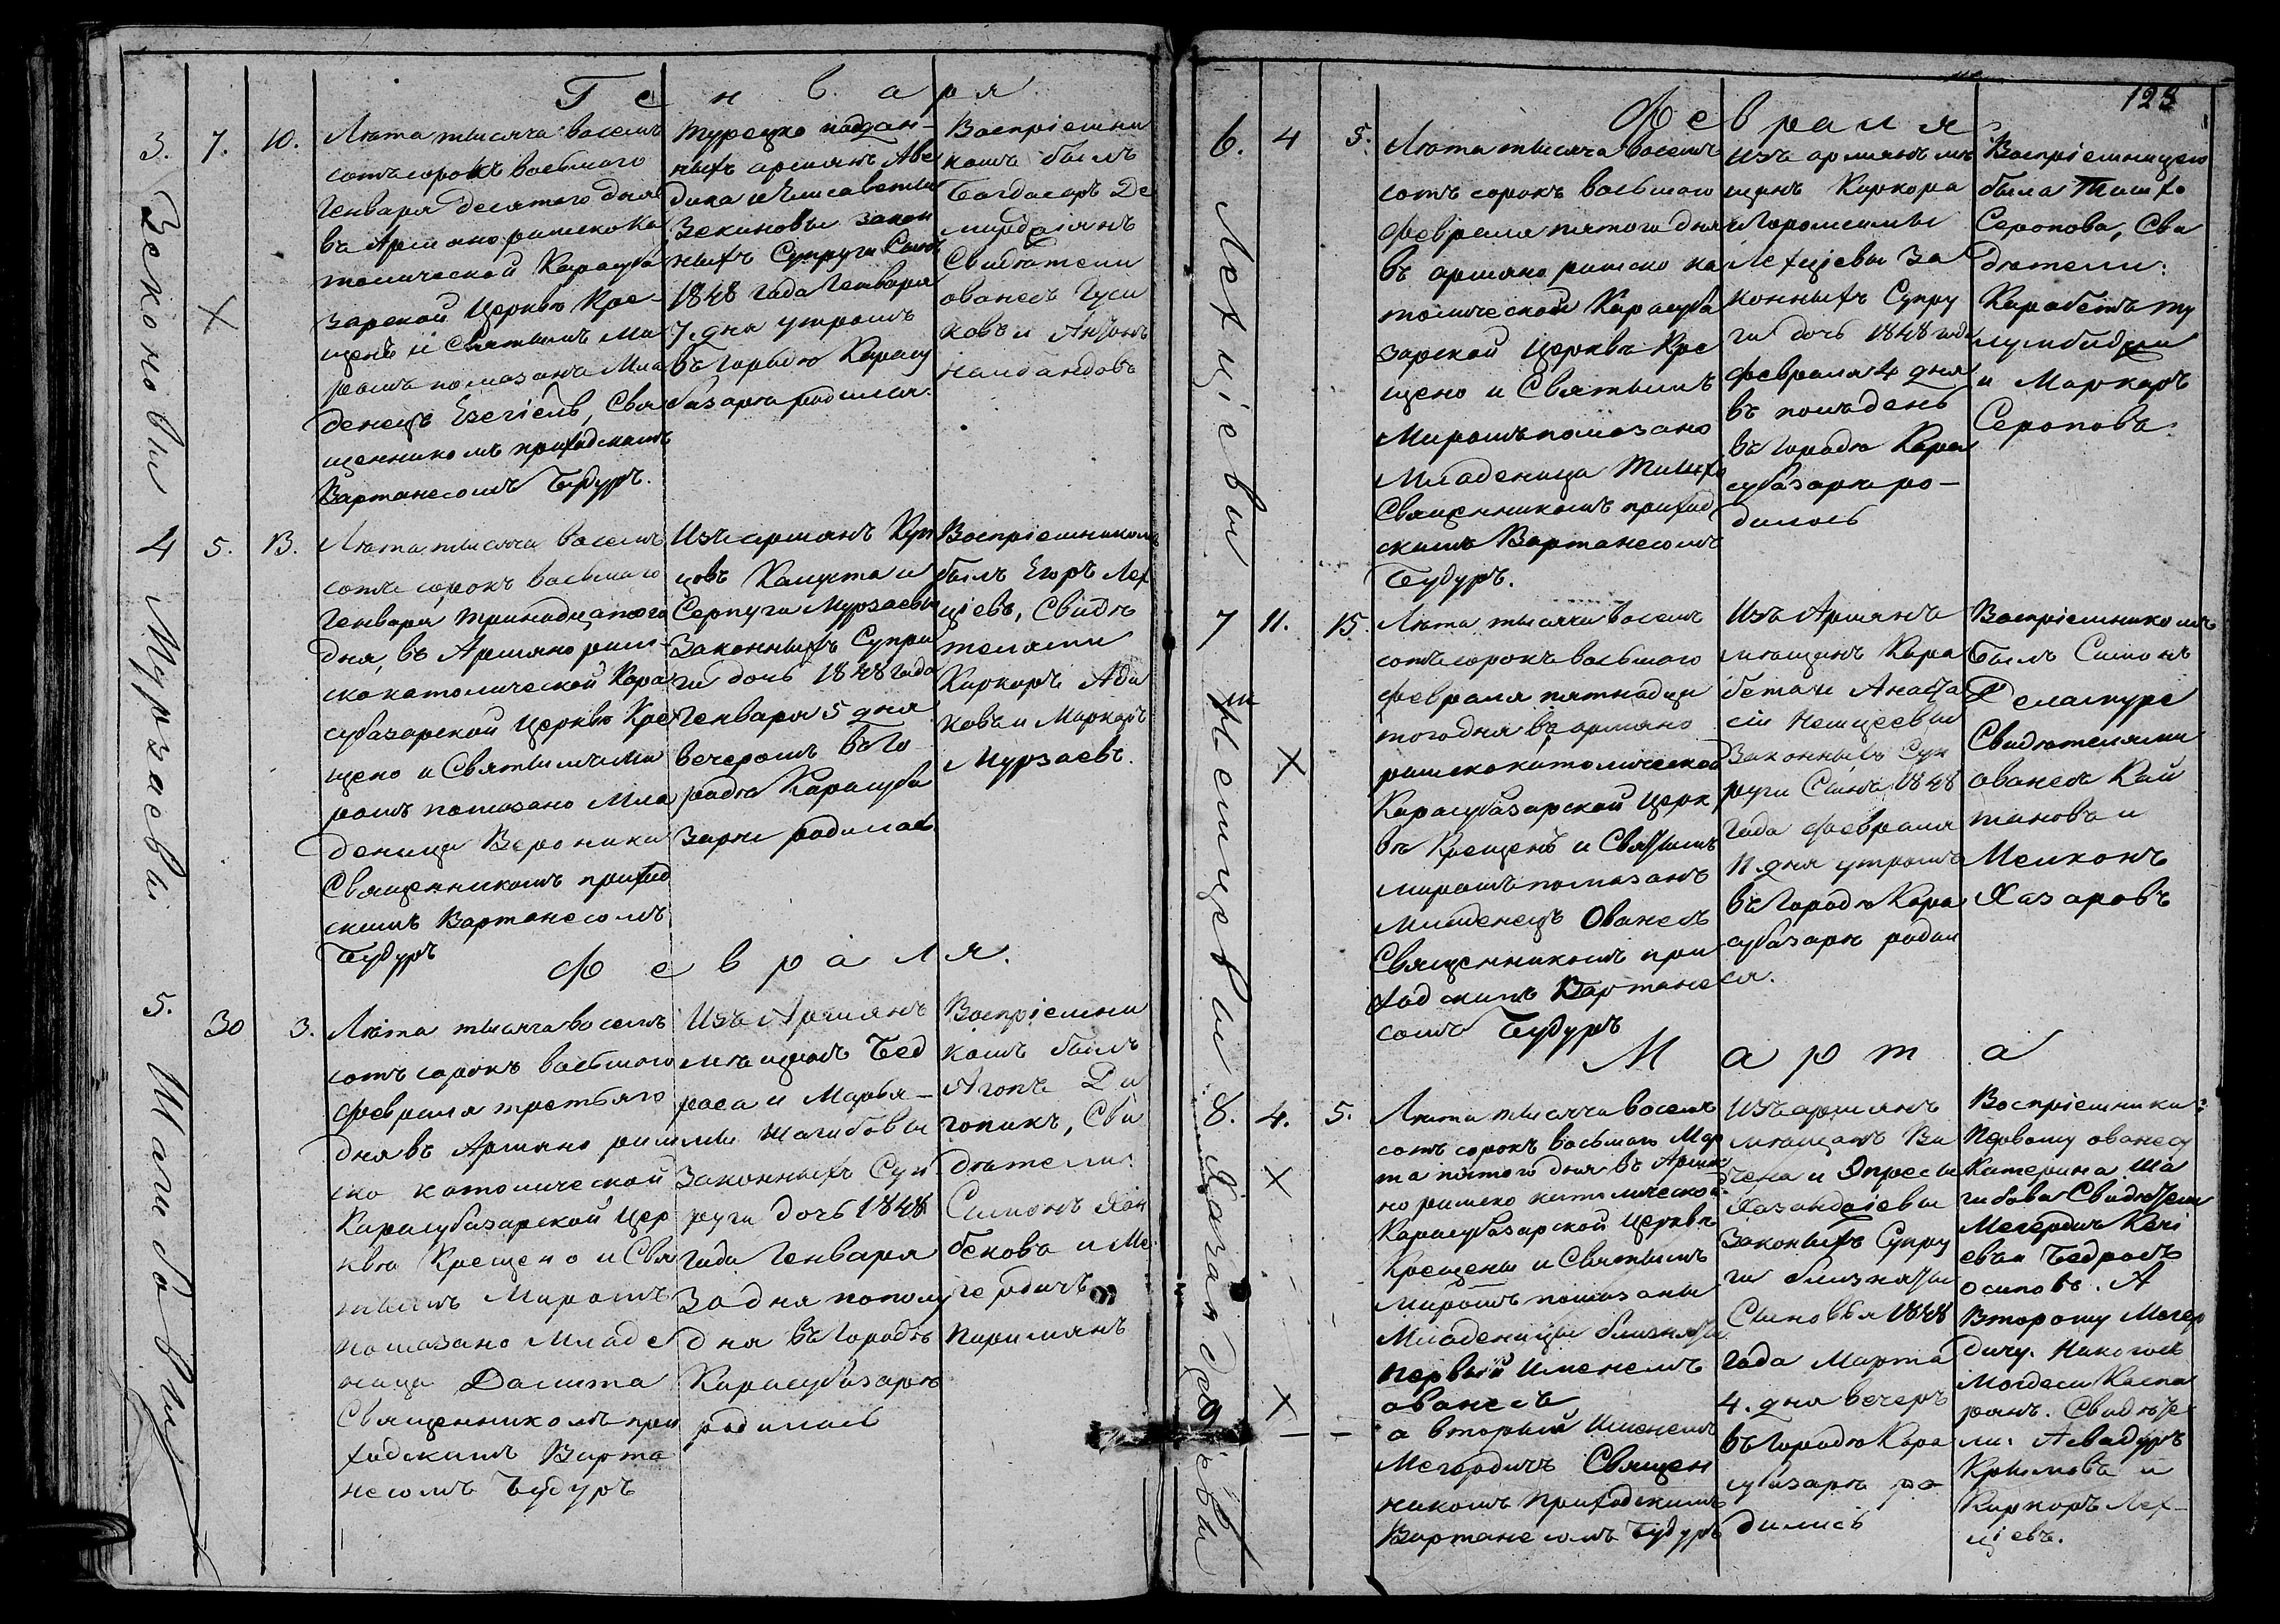 Генваря
3. 7. 10.
Зекиновы
Лѣта тысяча восемъ
сотъ сорокъ восьмаго
Генваря десятого дня
въ Армяно римско Ка
толической Карасуба
зарской Церквѣ Кре-
щенъ и Святымъ Ми
ромъ помазанъ Мла
денецъ Езегіелъ, Свя
щенникомъ приходскимъ
Вартанесомъ Будуръ.
Турецко поддан-
ныхъ армянъ Аве
дика и Елисаветы
Зекиновы закон
ныхъ Супруги Сынъ
1848 года Генваря
7. дня утромъ
въ Городѣ Карасу
базарѣ родился.
Воспріемни
комъ былъ
Багдасаръ Де
мирджіянъ
Свидѣтели
ованесъ Гуси
ковъ и Антонъ
Налбандовъ
4 5. 13.
Мурзаевы
Лѣта тысяча восемъ
сотъ сорокъ восьмаго
Генваря тринадцатого
дня, въ Армяно рим-
ско католической Кара
субазарской Церквѣ Кре
щено и Святымъ Ми
ромъ помазано Мла
деница Вероника
Священникомъ приход
скимъ Вартанесомъ
Будуръ
Изъ армянъ Куп
цовъ Калуста и
Серпуги Мурзаевы
Законныхъ Супру
ги дочь 1848 года
Генваря 5 дня
вечеромъ въ Го
родѣ Карасуба
зарѣ родилась
Воспріемникомъ
былъ Егоръ Лех
ціевъ, Свидѣ
телями
Киркоръ Ада
ковъ и Маркаръ
Мурзаевъ.
Февраля.
5. 30 3.
Шагибовы
Лѣта тысяча восемъ
сотъ сорокъ восьмаго
Февраля третьяго
дня въ Армяно рим
ско католической
Карасубазарской Цер
квѣ Крещено и Свя
тымъ Миромъ
помазано Младе
ница
Священникомъ при
ходскимъ Варта
несомъ Будуръ
Изъ Армянъ
мѣщанъ Бед
роса и Марья-
мы Шагибовы
Законныхъ Суп
руги дочь 1848
года Генваря
30 дня полу
дня въ Городѣ
Карасубазарѣ
родилась
Воспріемни
комъ былъ
Агопъ Ди
гопикъ, Сви
дѣтели:
Симонъ Хан
бековъ и Ме
гердичъ
Пиримянъ
123
Февраля
6. 4 5.
Лехціевы
Лѣта тысяча восемъ
сотъ сорокъ восьмаго
Февраля пятого дня
въ армяно римско ка
толической Карасуба
зарской Церквѣ Кре
щено и Святымъ
Миромъ помазано
Младеница
Священникомъ приход
скимъ Вартанесомъ
Будуръ.
Изъ армянъ мѣ
щанъ Киркора
и
Лехціевы За
конныхъ Супру
ги дочь 1848 года
Февраля 4 дня
въ полъ день
въ Городѣ Кара
субазарѣ ро-
дилась
Воспріемницею
была
Серопова, Сви
дѣтели:
Карабетъ
и Маркаръ
Серопова.
7 11. 15.
Немцевы
Лѣта тысяча восемъ
сотъ сорокъ восьмаго
Февраля пятнадца
того дня въ армяно
римско католической
Карасубазарской Церк
вѣ Крещенъ и Святымъ
миромъ помазанъ
младенецъ Ованесъ
Священникомъ при
ходскимъ Вартане
сомъ Будуръ
Изъ Армянъ
мѣщанъ Кара
бета и Анаста
сіи Немцевы
Законныхъ Суп
руги Сынъ 1848
года Февраля
11. дня утромъ
въ Городѣ Кара
субазарѣ родил
ся.
Воспріемникомъ
былъ Симонъ
Деламуре
Свидѣтелями
ованесъ Кай
тановъ и
Мелконъ
Хазаровъ
Марта
8. 4. 5.
9
Хазанджіевы
Лѣта тысяча восемъ
сотъ сорокъ восьмаго Мар
та пятого дня въ Армя
но римско католической
Карасубазарской Церквѣ
Крещены и Святымъ
Миромъ помазаны
Младеницы близнята
первый Именемъ
ованесъ,
а вторый Именемъ
Мегердичъ Священ
никомъ Приходскимъ
Вартанесомъ Будуръ
Изъ армянъ
мѣщанъ Ви
чена и Эпресы
Хазанджіевы
Законныхъ Супру
ги близняты
Сыновья 1848
года Марта
4. дня вечеръ
въ Городѣ Кара
субазарѣ ро
дились
Воспріемники:
Первому ованесу
Катерина Ша
гибова Свидѣтели
Мегердичъ Кечі
евъ и Бедросъ
Осиповъ. А
Второму Мегер
дичу. Никогосъ
Магдеси Каспа
рянъ. Свидѣте
ли: Асвадуръ
Крымовъ и
Киркоръ Лех-
ціевъ.